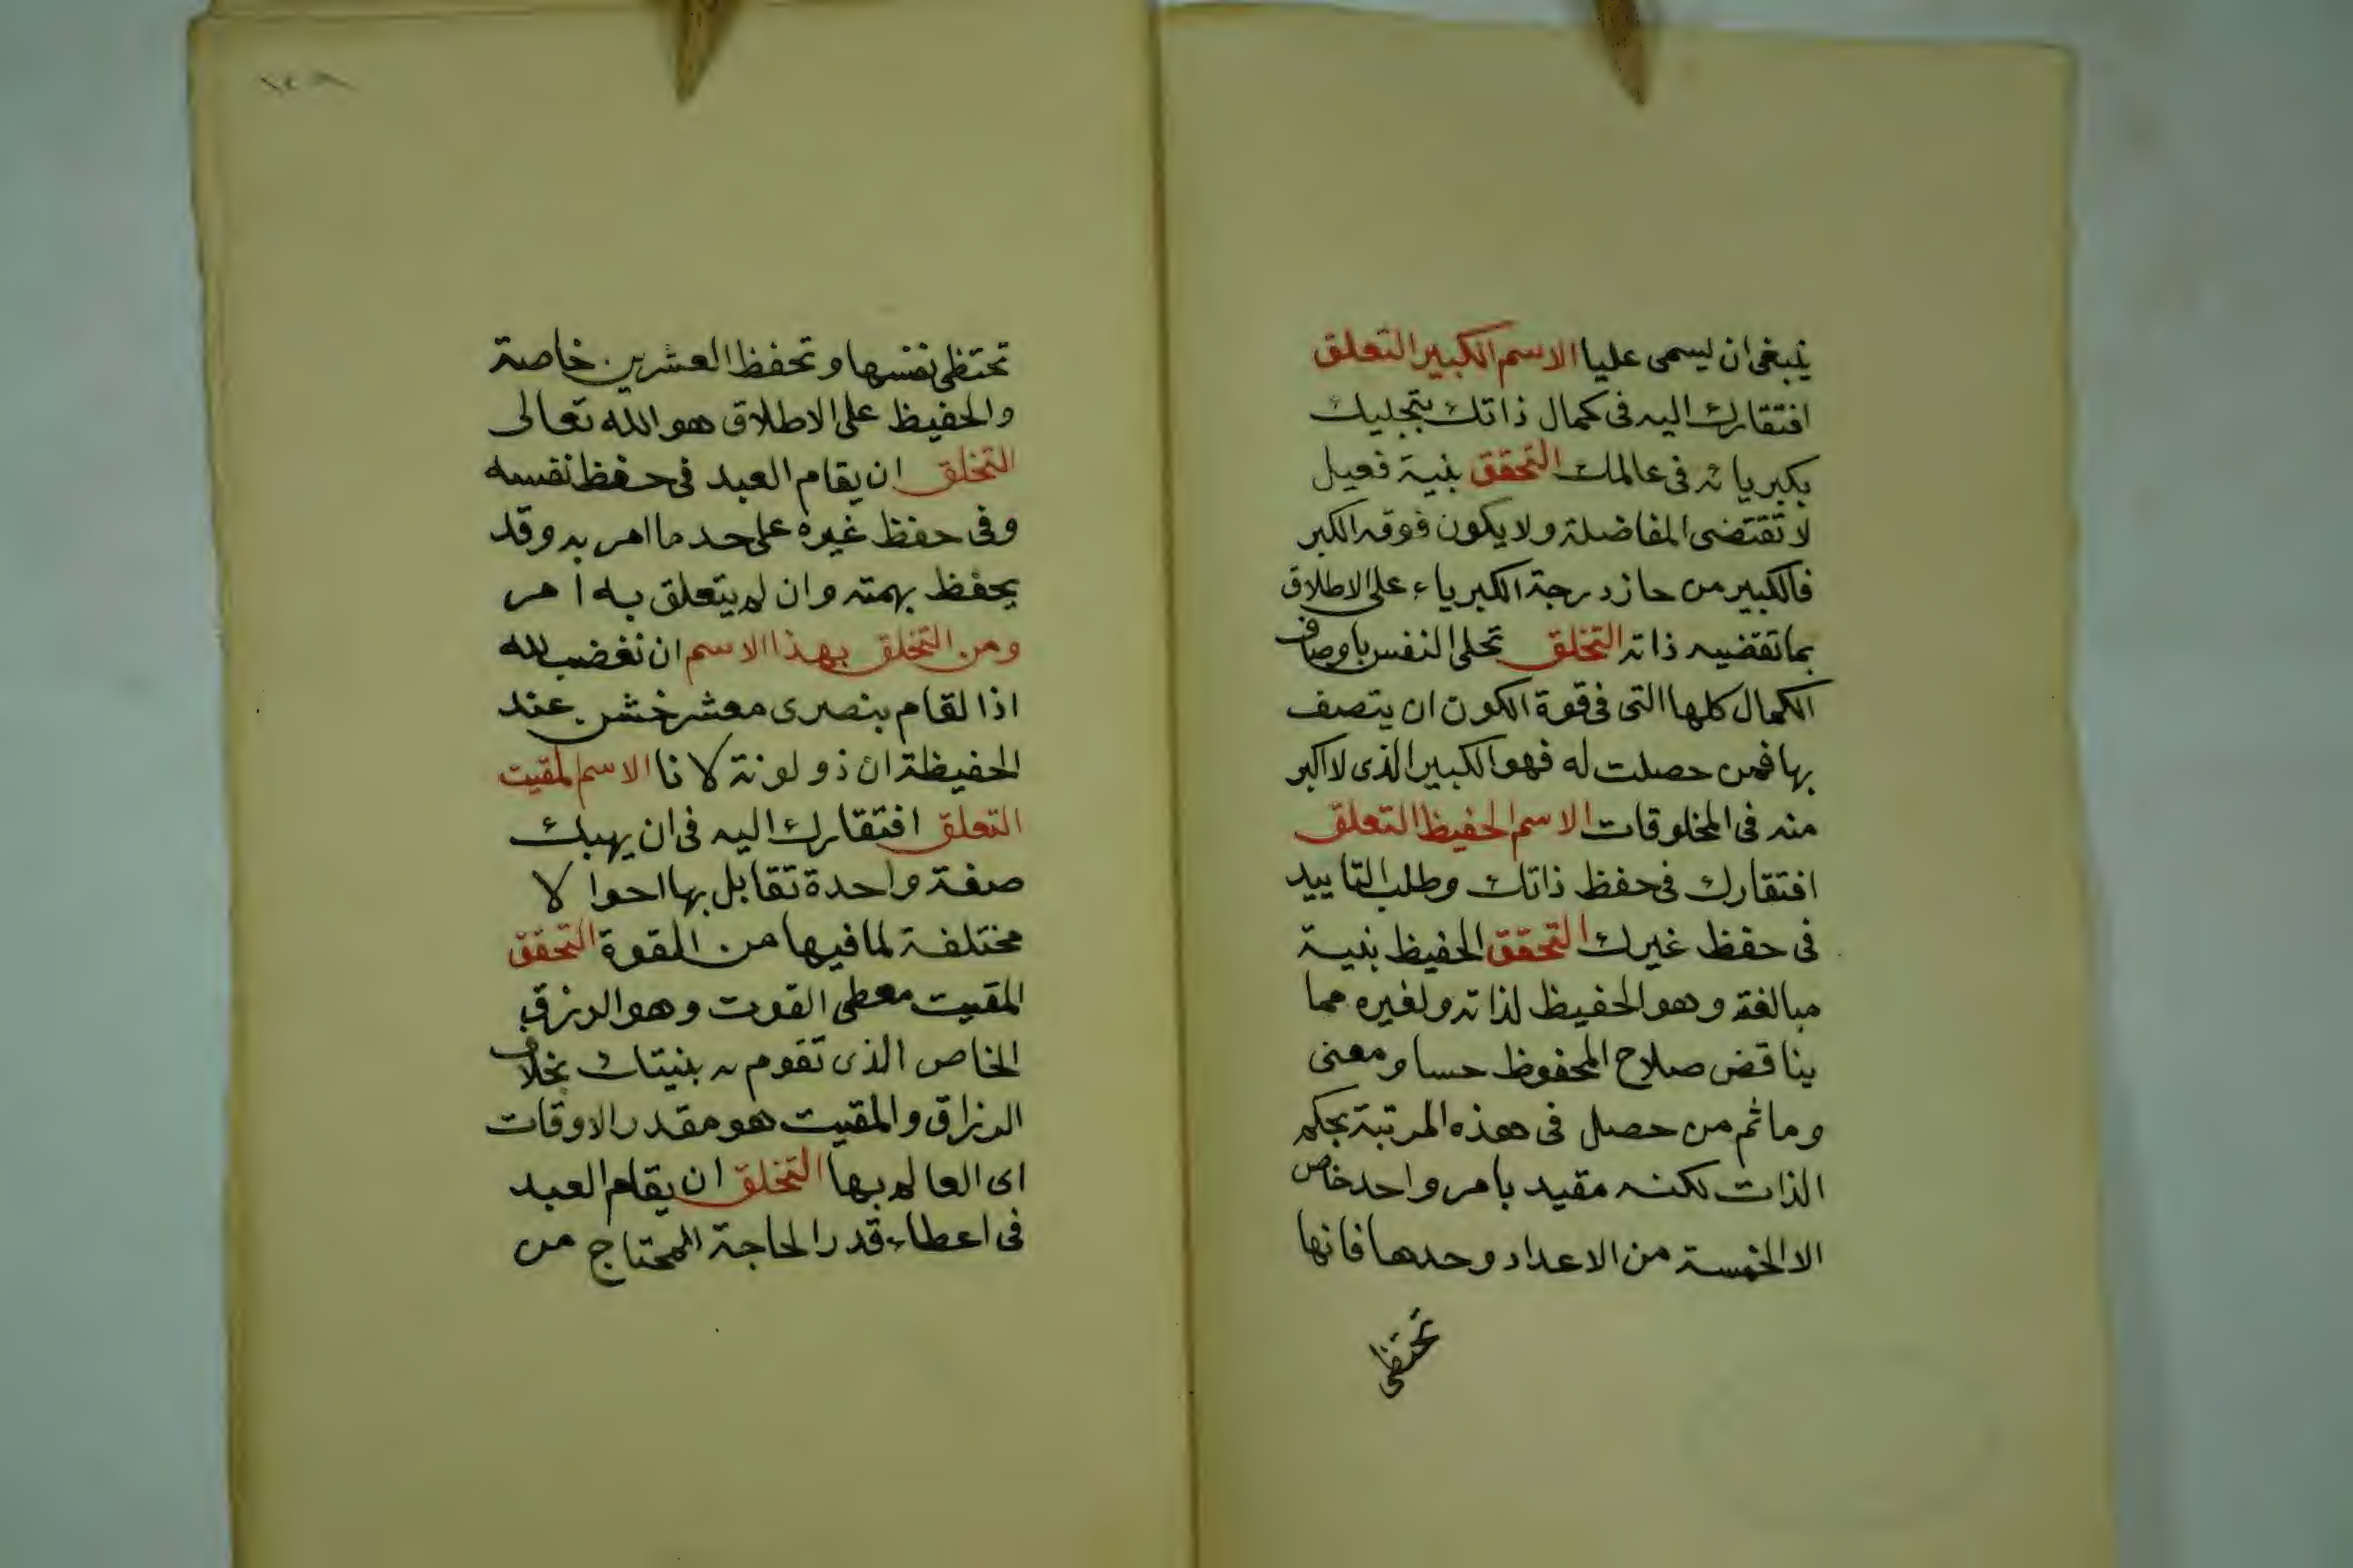 ينبغى ان ليسمى عليا الاسم الكبير التعلق
افتقارك اليه فى كمال ذاتك بتجليك
بكبريائه فى عالمك التحقق بنية فعيل
لا تقتضى المفاضلة ولا يكون فوقه اكبر
فالكبير من حاز درجة الكبرياء على الاطلاق
بما تقضيه ذاته التخلق تحلى النفس باوصاف
الكمال كلها التى فى قوة الكون ان يتصف
بها فمن حصلت له فهو الكبير الذى لا اكبر
منه فى المخلوقات الاسم الحفيظ التعلق
افتقارك فى حفظ ذاتك وطلب التاييد
فى حفظ غيرك التحقق الحفيظ بنية
مبالغة وهو الحفيظ لذاته ولغيره مما
يناقض صلاح المحفوظ حسا ومعنى
وما ثم من حصل فى هذه المرتبة بحكم
الذات لكنه مقيد بامر واحد خاص
الا الخمسة من الاعداد وحدها فانها
تحتفظ
تحتفظ نفسها وتحفظ العشرين خاصة
والحفيظ على الاطلاق هو الله تعالى
التخلق ان يقام العبد فى حفظ نفسه
وفى حفظ غيره على حد ما امر به وقد
يحفظ بهمته وان لم يتعلق به امر
ومن التخلق بهذا الاسم ان تغضب لله
اذا لقام بنصرى معشر خشن عند
الحفيظة ان ذو لوثة لانا الاسم المقيت
التعلق افتقارك اليه فى ان يهبك
صفة واحدة تقابل بها احوالا
مختلفة لما فيها من القوة التحقق
المقيت معطى القوت وهو الرزق
الخاص الذى تقوم به بنيتك بخلاف
الرزاق والمقيت هو مقدر الاوقات
اى العالم بها التخلق ان يقام العبد
فى اعطاء قدر الحاجة المحتاج من